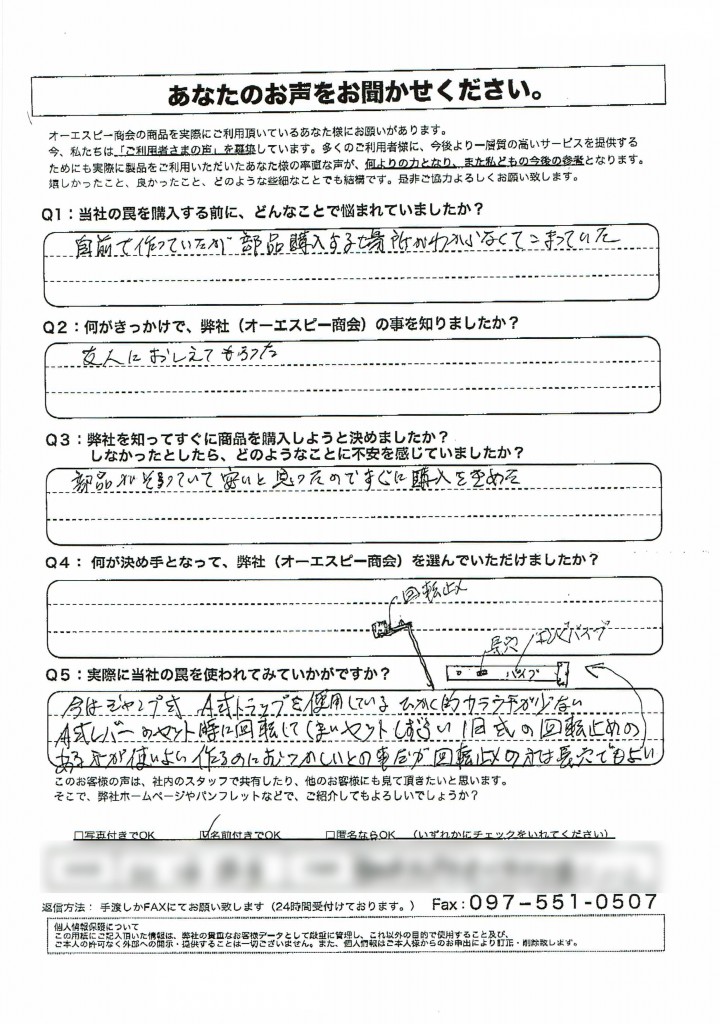 あなたのお声をお聞かせください。
オーエスピー商会の商品を実際にご利用頂いているあなた様にお願いがあります。
今、私たちは「ご利用者さまの声」を募集しています。多くのご利用者様に、今後より一層質の高いサービスを提供する
ためにも実際に製品をご利用いただいたあなた様の率直な声が、何よりの力となり、また私どもの今後の参考となります。
嬉しかったこと、良かったこと、どのような些細なことでも結構です。是非ご協力よろしくお願い致します。
Q1：当社の罠を購入する前に、どんなことで悩まれていましたか？
自前で作っていたが 部品購入する場所がわからなくてこまっていた
Q2：何がきっかけで、弊社（オーエスピー商会）の事を知りましたか？
友人におしえてもらった
Q3：弊社を知ってすぐに商品を購入しようと決めましたか？
しなかったとしたら、どのようなことに不安を感じていましたか？
部品がそろっていて安いと思ったのですぐに購入を決めた
Q4：何が決め手となって、弊社（オーエスピー商会）を選んでいただけましたか？
回転止め
長穴 エンビパイプ
パイプ
Q5：実際に当社の罠を使われてみていかがですか？
今はジャンプ式 A式トラップを使用している ひかく的カラウチが少ない
A式レバーのセット時に回転してしまいセットしずらい 旧式の回転止めの
ある方が使いよい 作るのにむつかしいとの事だが回転止めの方は長穴でもよい
このお客様の声は、社内のスタッフで共有したり、他のお客様にも見て頂きたいと思います。
そこで、弊社ホームページやパンフレットなどで、ご紹介してもよろしいでしょうか？
□写真付きでOK ☑名前付きでOK □匿名ならOK （いずれかにチェックをいれてください）
返信方法： 手渡しかFAXにてお願い致します（24時間受付けております。） Fax：097-551-0507
個人情報保護について
この用紙にご記入頂いた情報は、弊社の貴重なお客様データとして厳重に管理し、これ以外の目的で使用すること及び、
ご本人の許可なく外部への開示・提供することは一切ございません。また、個人情報はご本人様からのお申出により訂正・削除致します。